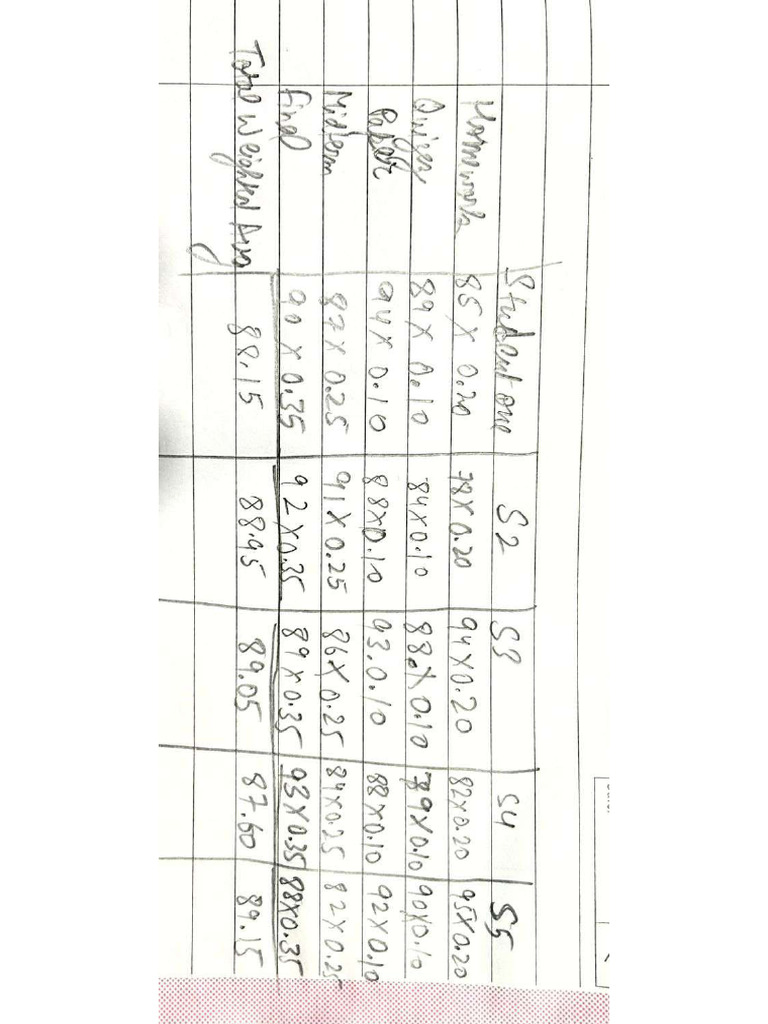 Student one S2 S3 S4 S5
Homework 85 X 0.20 78 X 0.20 94 X 0.20 82 X 0.20 95 X 0.20
Quizzes 89 X 0.10 84 X 0.10 88 X 0.10 79 X 0.10 90 X 0.10
Paper 94 X 0.10 88 X 0.10 93.0.10 88 X 0.10 92 X 0.10
Midterm 87 X 0.25 91 X 0.25 86 X 0.25 84 X 0.25 82 X 0.25
Final 90 X 0.35 92 X 0.35 89 X 0.35 93 X 0.35 88 X 0.35
Total Weighted Avg 88.15 88.95 89.05 87.60 89.15